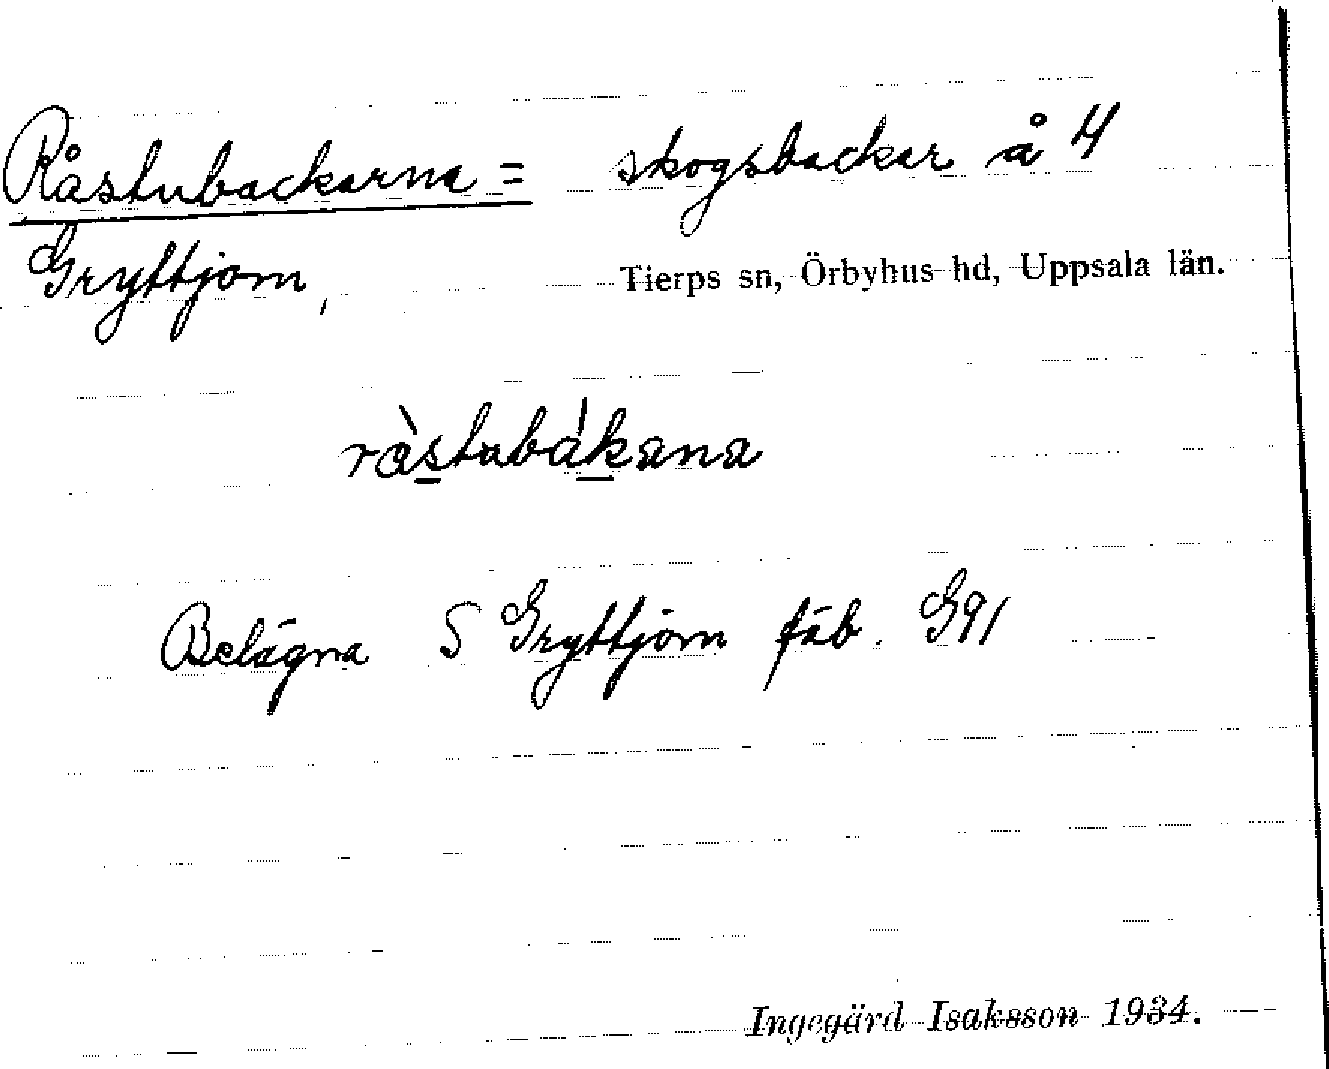 Råstubackarna = skogsbackar å 4
Gryttjom, Tierps sn, Örbyhus hd, Uppsala län.
ràstubákana
Belägna S Gryttjom fäb. G91
Ingegärd Isaksson 1934.